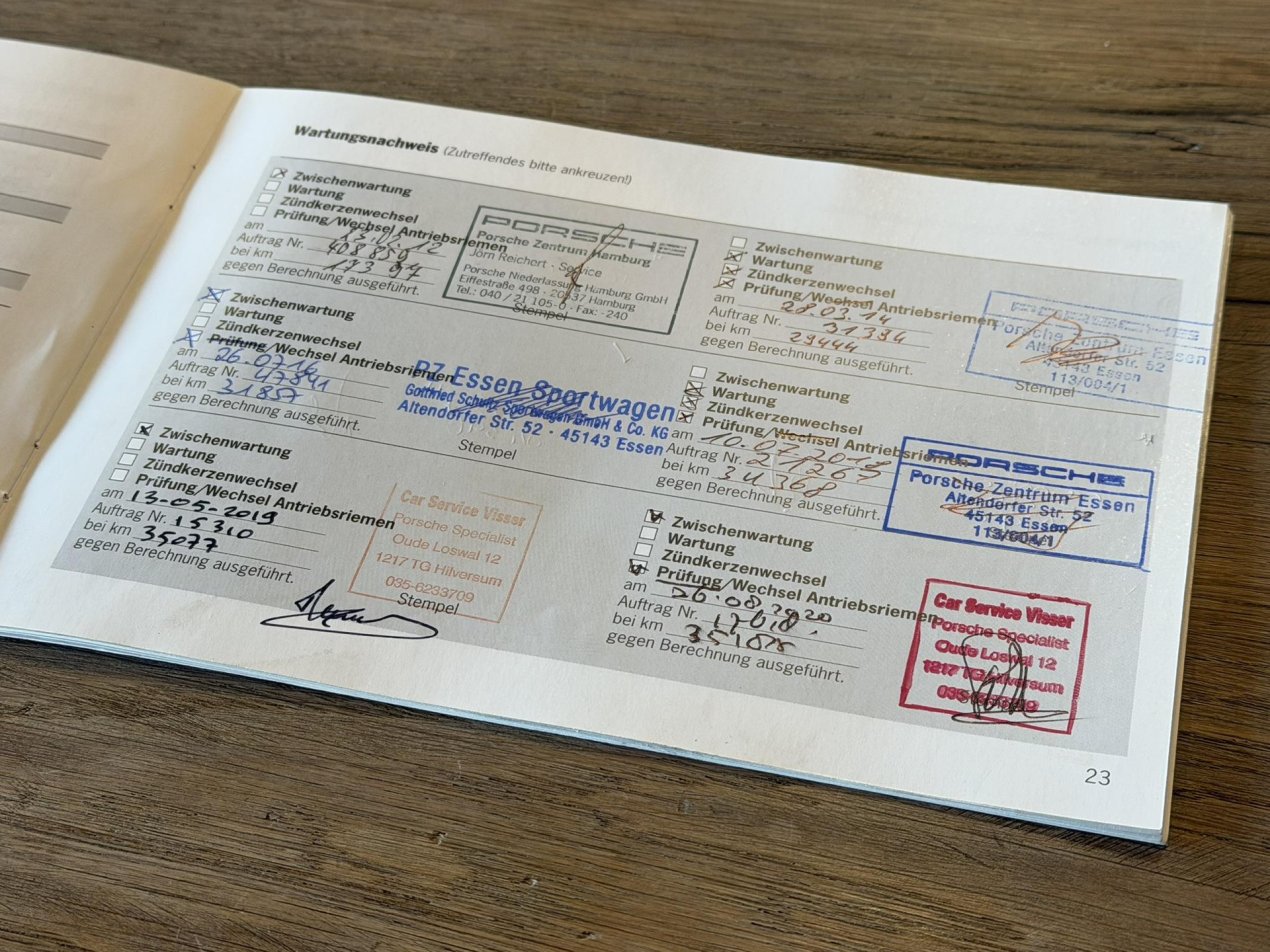 Wartungsnachweis (Zutreffendes bitte ankreuzen!)
Zwischenwartung
Wartung
Zündkerzenwechsel
Prüfung/Wechsel Antriebsriemen
am
Auftrag Nr. 408859
bei km
gegen Berechnung ausgeführt.
PORSCHE
Porsche Zentrum Hamburg
Jörn Reichert · Service
Porsche Niederlassung Hamburg GmbH
Eiffestraße 498 · 20537 Hamburg
Tel.: 040 / 21 105-0 · Fax: -240
Stempel
Zwischenwartung
Wartung
Zündkerzenwechsel
Prüfung/Wechsel Antriebsriemen
am 28.03.14
Auftrag Nr. 31394
bei km 29444
gegen Berechnung ausgeführt.
PORSCHE
Porsche Zentrum Essen
Altendorfer Str. 52
45143 Essen
113/004/1
Stempel
Zwischenwartung
Wartung
Zündkerzenwechsel
Prüfung/Wechsel Antriebsriemen
am 26.07.16
Auftrag Nr. 47841
bei km 31857
gegen Berechnung ausgeführt.
PZ Essen Sportwagen
Gottfried Schultz Sportwagen GmbH & Co. KG
Altendorfer Str. 52 · 45143 Essen
Stempel
Zwischenwartung
Wartung
Zündkerzenwechsel
Prüfung/Wechsel Antriebsriemen
am
Auftrag Nr.
bei km 34368
gegen Berechnung ausgeführt.
PORSCHE
Porsche Zentrum Essen
Altendorfer Str. 52
45143 Essen
113/004/1
Zwischenwartung
Wartung
Zündkerzenwechsel
Prüfung/Wechsel Antriebsriemen
am 13-05-2019
Auftrag Nr. 15310
bei km 35077
gegen Berechnung ausgeführt.
Car Service Visser
Porsche Specialist
Oude Loswal 12
1217 TG Hilversum
035-6233709
Stempel
Zwischenwartung
Wartung
Zündkerzenwechsel
Prüfung/Wechsel Antriebsriemen
am 26.08.2020
Auftrag Nr.
bei km
gegen Berechnung ausgeführt.
Car Service Visser
Porsche Specialist
Oude Loswal 12
1217 TG Hilversum
23